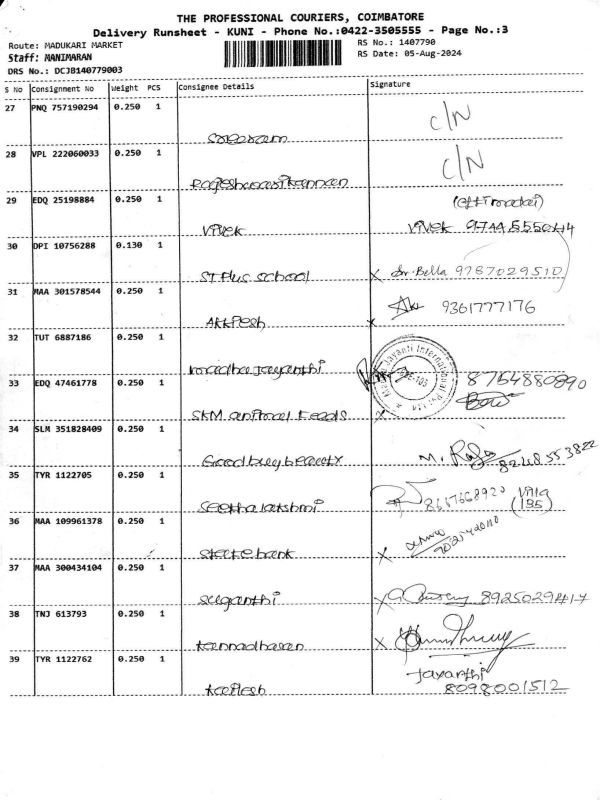 THE PROFESSIONAL COURIERS, COIMBATORE
Delivery Runsheet - KUNI - Phone No.:0422-3505555 - Page No.:3
Route: MADUKARI MARKET RS No.: 1407790
Staff: MANIMARAN RS Date: 05-Aug-2024
DRS No.: DCJB140779003
S No Consignment No Weight PCS Consignee Details Signature
27 PNQ 757190294 0.250 1 C/N
28 VPL 222060033 0.250 1 C/N
29 EDQ 25198884 0.250 1 (ettimadai)
Vivek Vivek
30 DPI 10756288 0.130 1
ST Plus school Bella 9787029510
31 MAA 301578544 0.250 1 9361777176
Akhlesh
32 TUT 6887186 0.250 1
Jayanthi Jayanti International
33 EDQ 47461778 0.250 1 8754880890
SKM animal feeds
34 SLM 351828409 0.250 1
Good buy beauty M. 8248553822
35 TYR 1122705 0.250 1 8657668920 Villa (195)
Seethalakshmi
36 MAA 109961378 0.250 1
State bank
37 MAA 300434104 0.250 1
Suganthi 8925029417
38 TNJ 613793 0.250 1
Kannadhasan
39 TYR 1122762 0.250 1 Jayanthi
Kailesh 8098001512